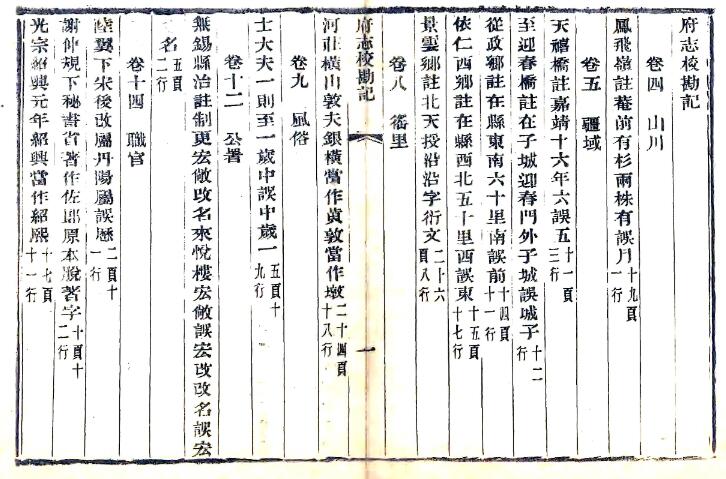 府志校勘記
卷四　山川
鳳飛嶺註菴前有杉兩株有誤月十九頁一行
卷五　疆域
天禧橋註嘉靖十六年六誤五十一頁三行
至迎春橋註在子城迎春門外子城誤城子十二行
從政鄉註在縣東南六十里南誤前十四頁十一行
依仁西鄉註在縣西北五十里西誤東十五頁十七行
景雲鄉註北天投沿沿字衍文二十六頁八行
卷八　鄉里
府志校勘記　一
河莊橫山敦夫銀橫當作黄敦當作墩二十四頁十八行
卷九　風俗
士大夫一則至一歲中誤中歲一五頁十九行
卷十二　公署
無錫縣治註制更宏敞改名來悅樓宏敞誤宏改改名誤宏
名五頁二行
卷十四　職官
陸翼下宋後改屬丹陽屬誤歷二頁十一行
謝仲規下秘書省著作佐郎原本脫著字十頁十二行
光宗紹興元年紹興當作紹熙十七頁十一行